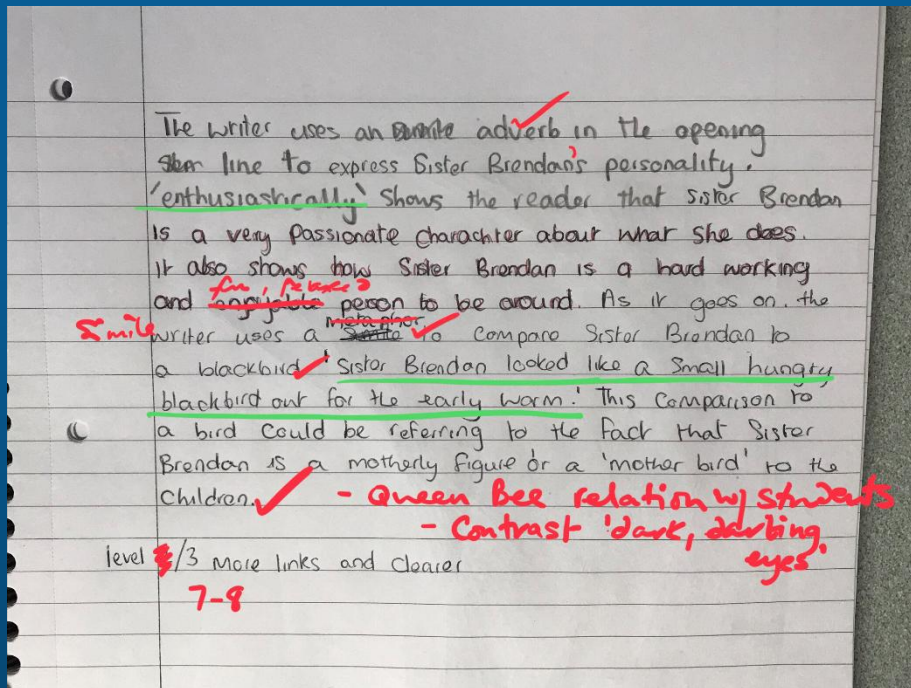 The writer uses an adverb in the opening
line to express Sister Brendan's personality.
'enthusiastically' shows the reader that sister Brendan
is a very passionate charachter about what she does.
It also shows how Sister Brendan is a hard working
fun,
and enjoyable person to be around. As it goes on. the
metaphor
Simile writer uses a Simile to compare Sister Brendan to
a blackbird 'Sister Brendan looked like a small hungry
blackbird out for the early worm.' This comparison to
a bird could be referring to the fact that Sister
Brendan is a motherly figure or a 'mother bird' to the
children. - Queen Bee relation w/ students
- Contrast 'dark, darting
eyes'
level /3 more links and clearer
7-8